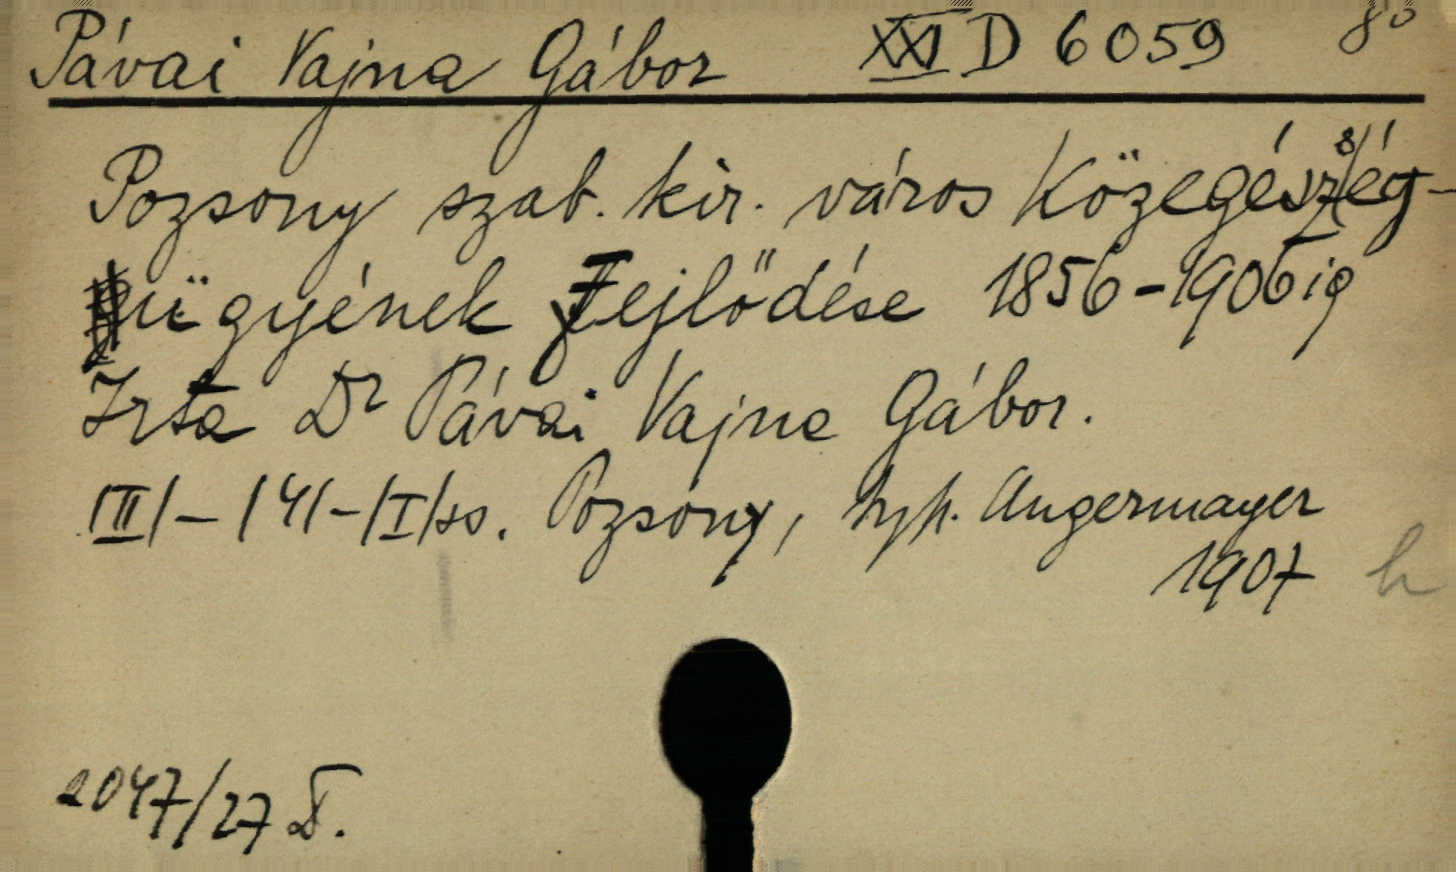 Pávai Vajna Gábor XXI D 6059 8°
Pozsony szab. kir. város Közegészség-
ügyének Fejlődése 1856-1906ig
Irta Dr Pávai Vajna Gábor.
|III|-|41-|I|ss. Pozsony, typ. Angermayer
1907 h
2047/27